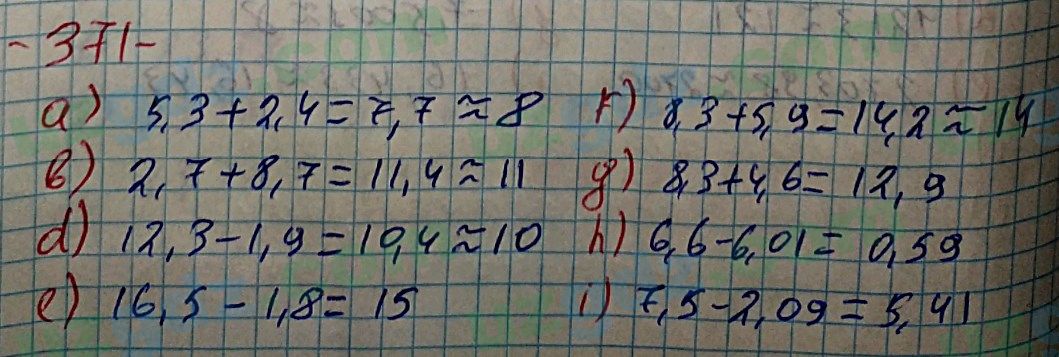 -371-
a) 5,3+2,4=7,7≈8
b) 2,7+8,7=11,4≈11
d) 12,3-1,9=10,4≈10
e) 16,5-1,8=15
f) 8,3+5,9=14,2≈14
g) 8,3+4,6=12,9
h) 6,6-6,01=0,59
i) 7,5-2,09=5,41